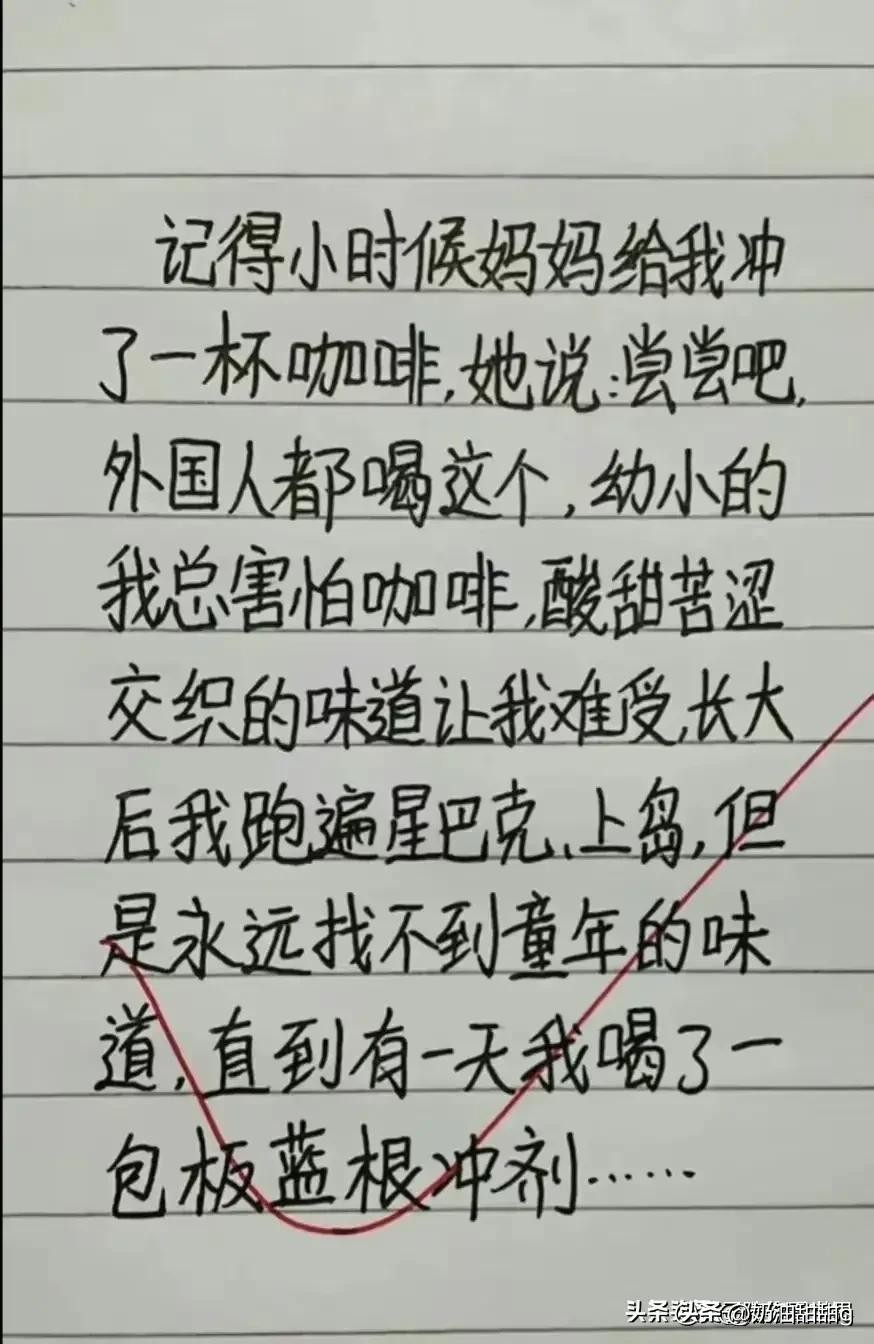 记得小时候妈妈给我冲
了一杯咖啡,她说:尝尝吧,
外国人都喝这个,幼小的
我总害怕咖啡,酸甜苦涩
交织的味道让我难受,长大
后我跑遍星巴克、上岛,但
是永远找不到童年的味
道,直到有一天我喝了一
包板蓝根冲剂……
头条 @奶油甜甜g